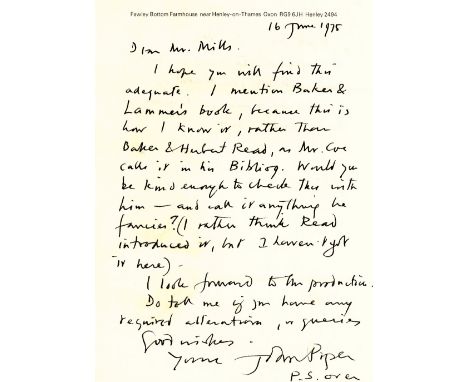 Fawley Bottom Farmhouse near Henley-on-Thames Oxon RG9 6JH Henley 2494
16 June 1975
Dear Mr. Mills.
I hope you will find this
adequate. I mention Baker &
Lammer's book, because this is
how I know it, rather than
Baker & Herbert Read, as Mr. Coe
calls it in his Bibliog. Would you
be kind enough to check this with
him — and call it anything he
fancies? (I rather think Read
introduced it, but I haven't got
it here) -
I look forward to the production.
Do tell me if you have any
required alterations, or queries
Good wishes.
Yours John Piper
P.S. over